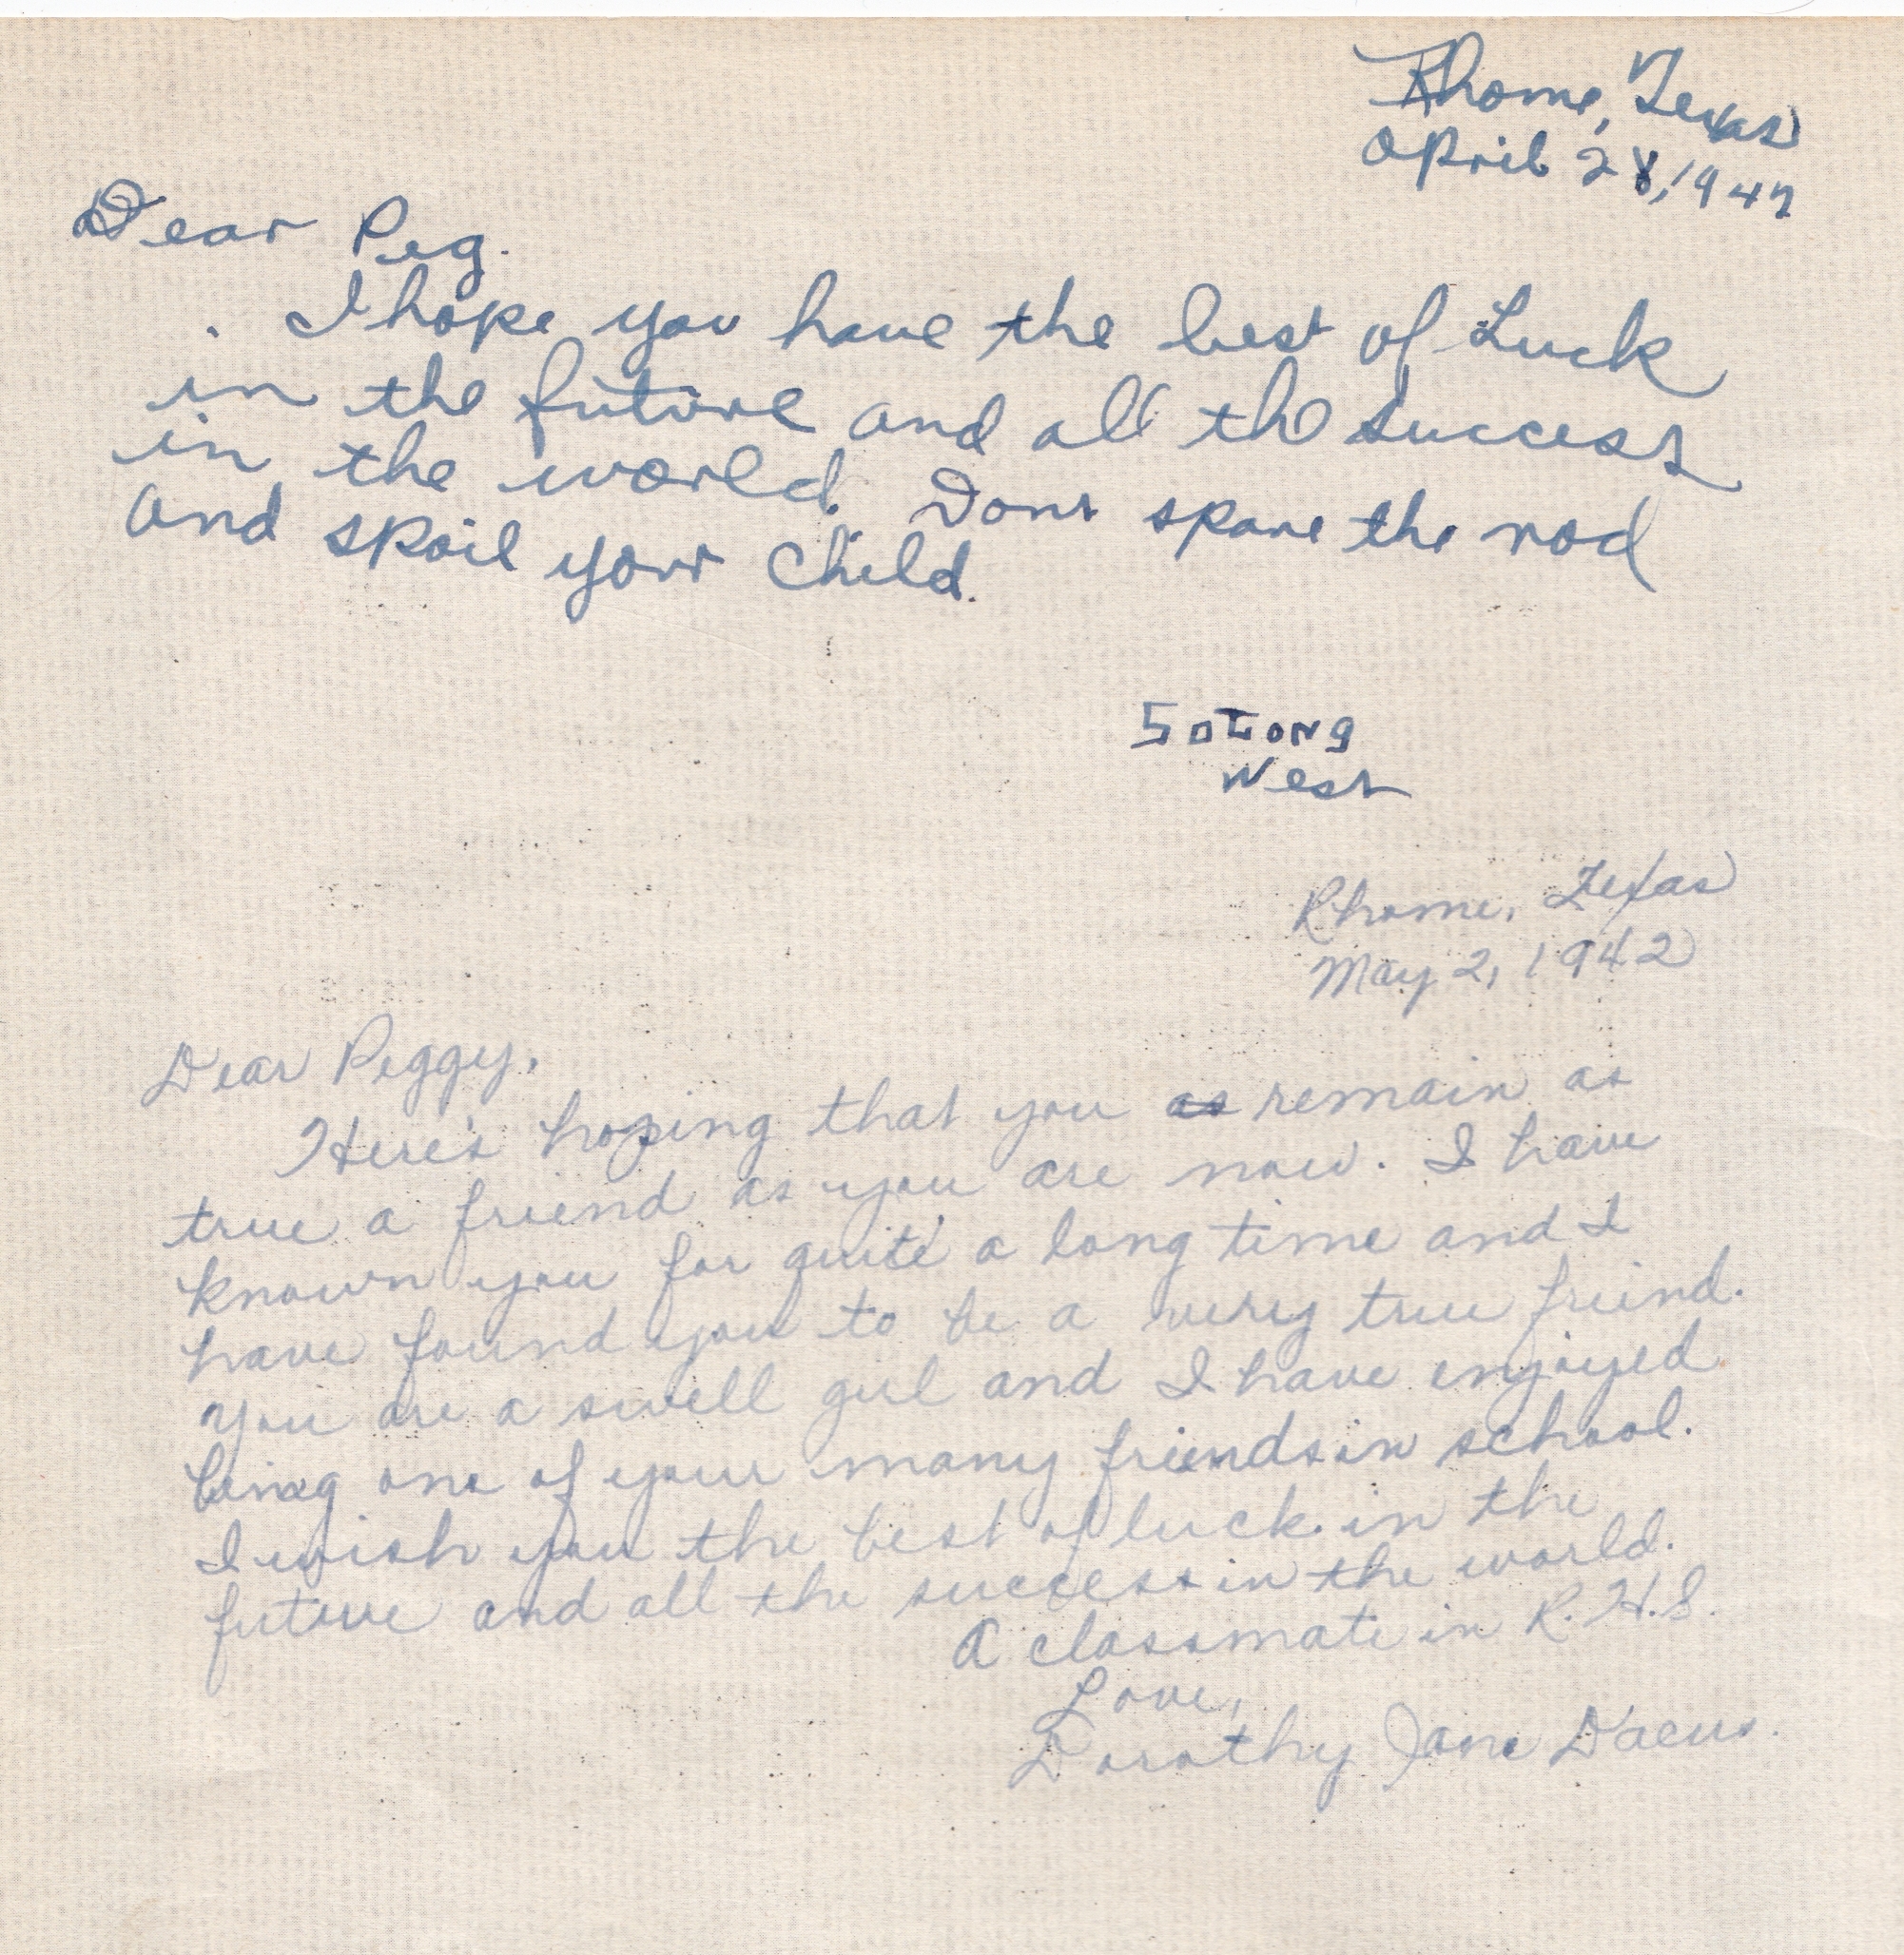 Rhome, Texas
April 28, 1942
Dear Peg.
I hope you have the best of Luck
in the future and all the success
in the world. Dont spare the rod
and spoil your child.
So Long
West
Rhome, Texas
May 2, 1942
Dear Peggy,
Here's hoping that you as remain as
true a friend as you are now. I have
known you for quite a long time and I
have found you to be a very true friend.
You are a swell girl and I have enjoyed
being one of your many friends in school.
I wish you the best of luck in the
future and all the success in the world.
A classmate in R.H.S.
Love,
Dorothy Jane Dacus.